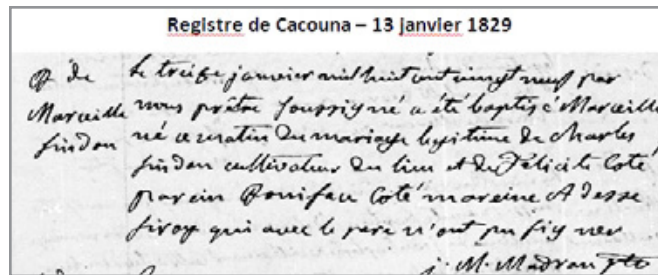 Registre de Cacouna – 13 janvier 1829
B de
Marceille
findon
Le treize janvier mil huit cent vingt neuf par
nous prêtre soussigné a été baptisé Marceille
né ce matin du mariage legitime de Charles
findon cultivateur du lieu et de Félicité Coté
parein Boniface Coté mareine
qui avec le pere n'ont pu signer
j. M. Madran ptre